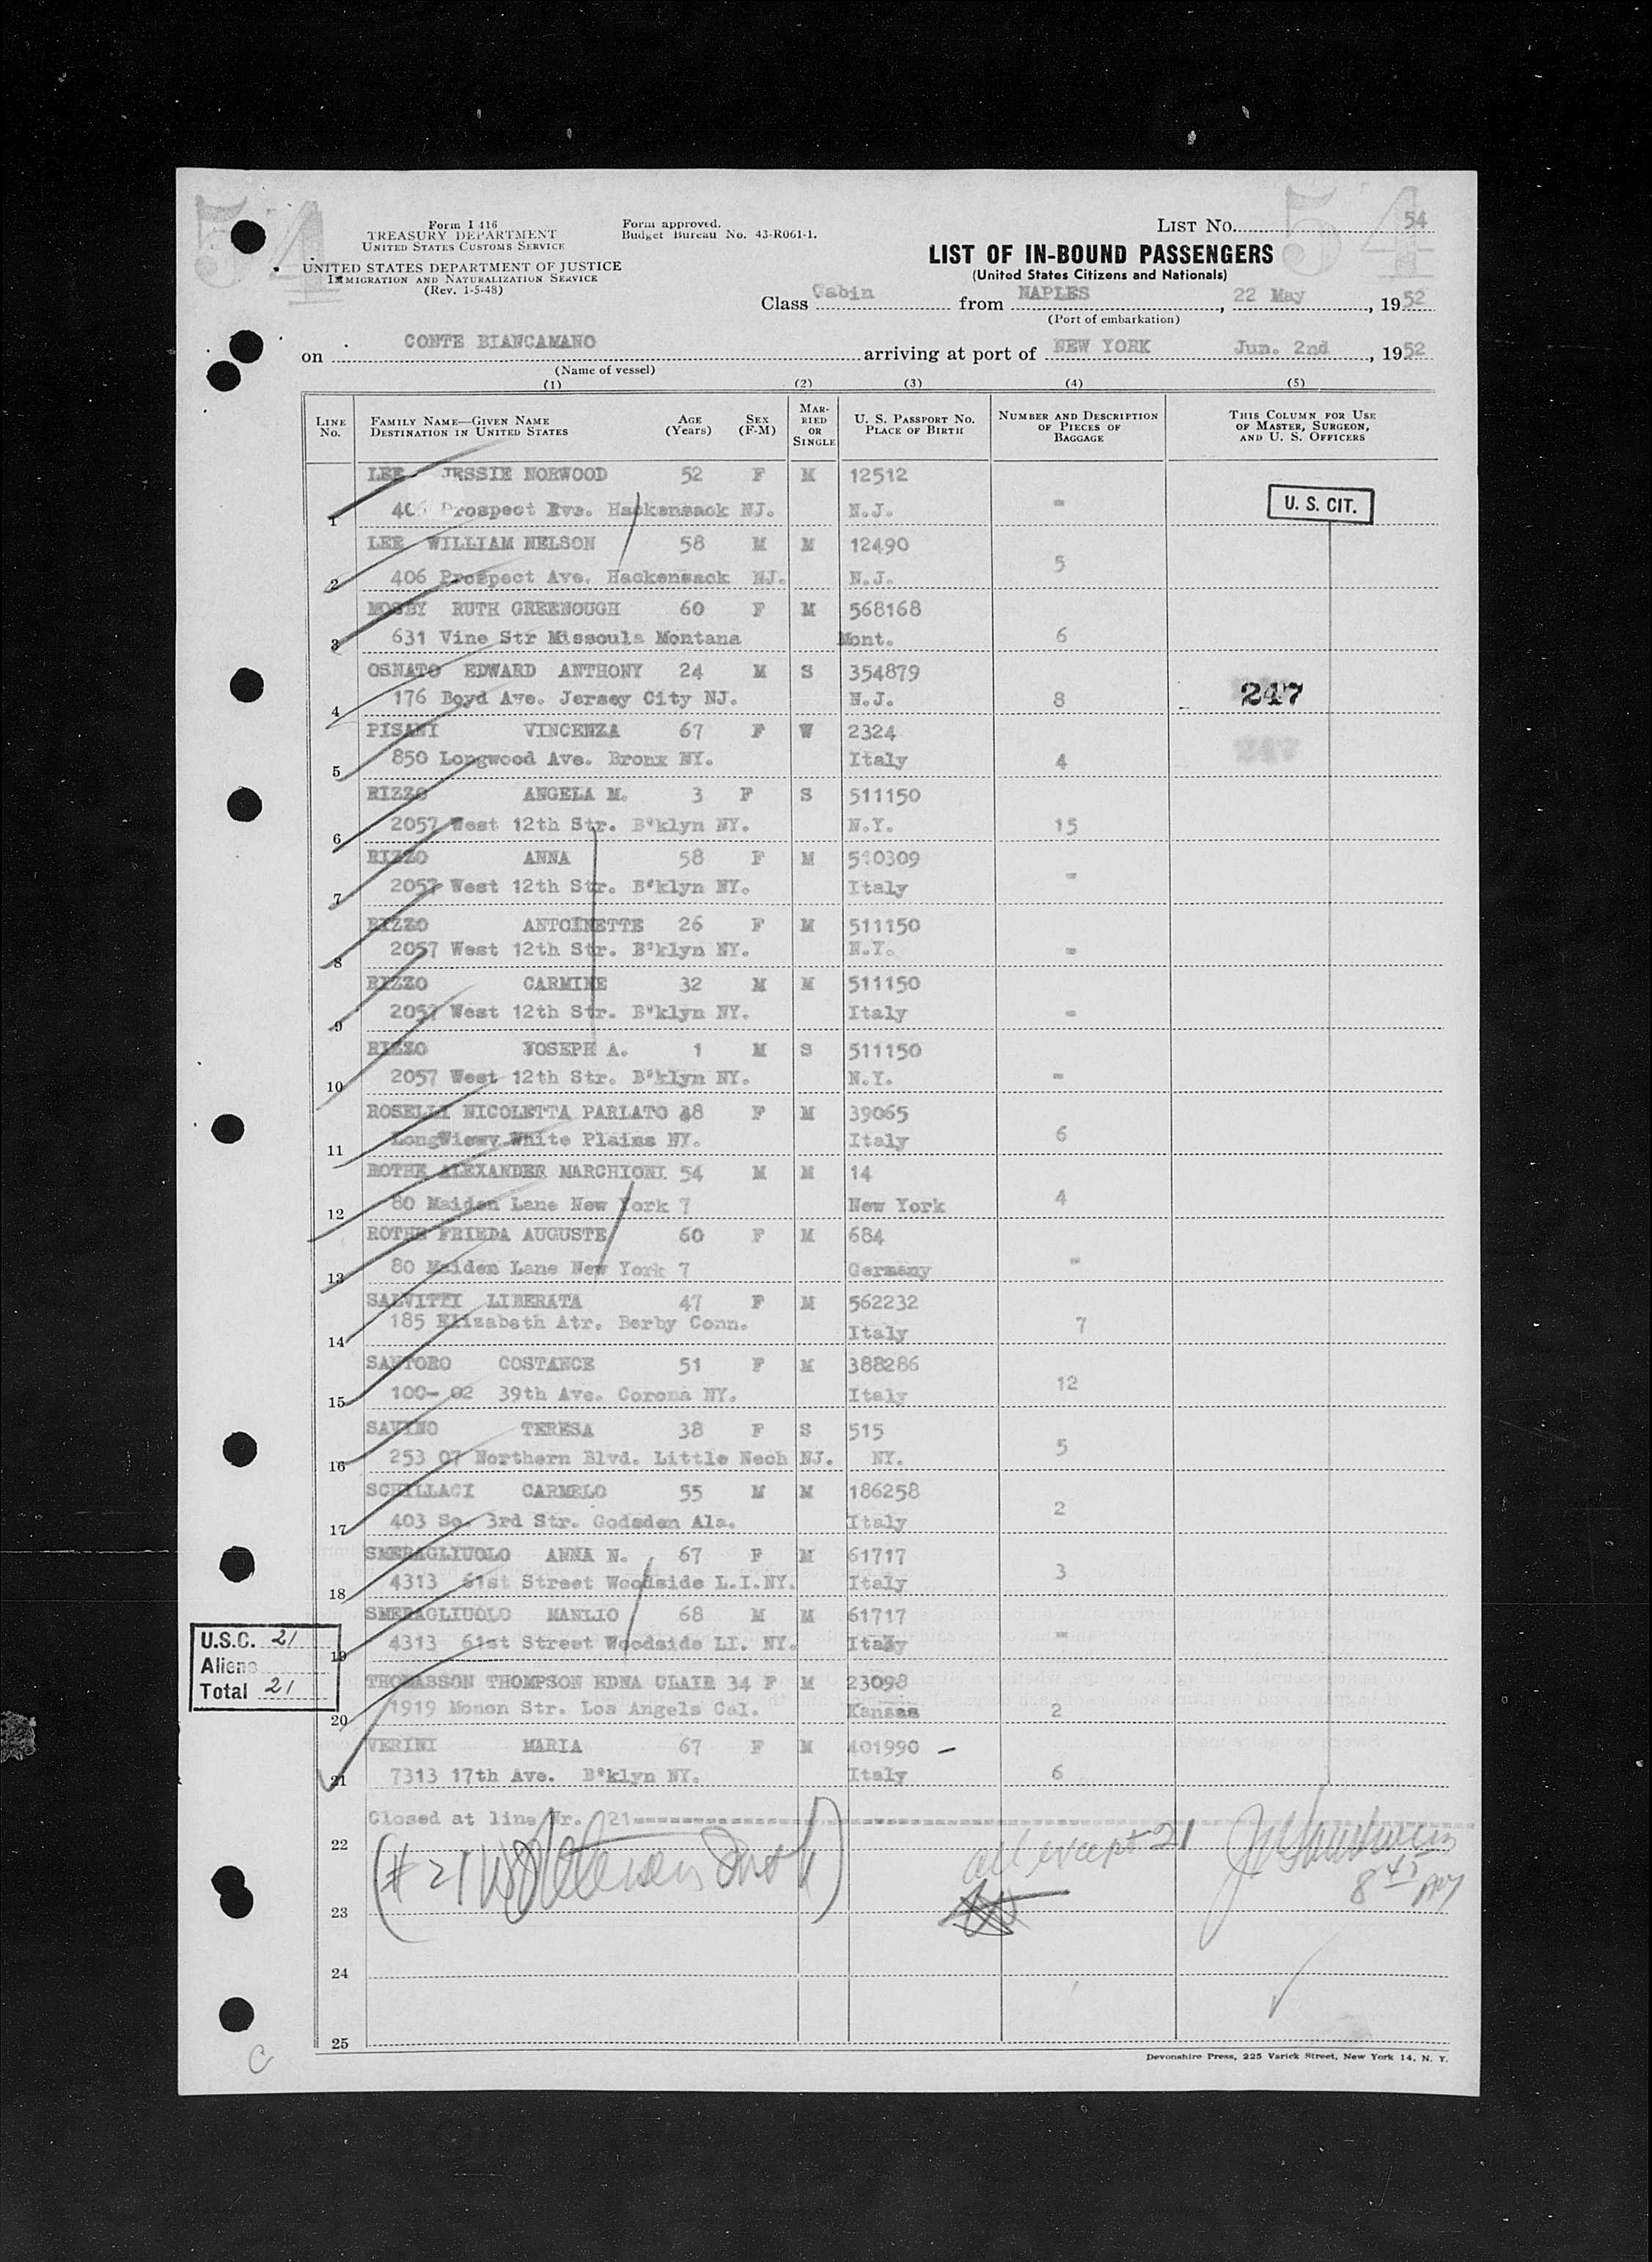 54
54
Form I 416
TREASURY DEPARTMENT
UNITED STATES CUSTOMS SERVICE
UNITED STATES DEPARTMENT OF JUSTICE
IMMIGRATION AND NATURALIZATION SERVICE
(Rev. 1-5-48)
Form approved.
Budget Bureau No. 43-R061-1.
LIST NO. 54
LIST OF IN-BOUND PASSENGERS
(United States Citizens and Nationals)
Class Cabin from NAPLES, 22 May, 1952
(Port of embarkation)
on CONTE BIANCAMANO arriving at port of NEW YORK Jun. 2nd, 1952
(Name of vessel)
(1) (2) (3) (4) (5)
LINE NO. FAMILY NAME—GIVEN NAME DESTINATION IN UNITED STATES AGE (YEARS) SEX (F-M) MARRIED OR SINGLE U. S. PASSPORT NO. PLACE OF BIRTH NUMBER AND DESCRIPTION OF PIECES OF BAGGAGE THIS COLUMN FOR USE OF MASTER, SURGEON, AND U. S. OFFICERS
LEE JESSIE NORWOOD 52 F M 12512
1 406 Prospect Ave. Hackensack NJ. N.J. - U. S. CIT.
LEE WILLIAM NELSON 58 M M 12490
2 406 Prospect Ave. Hackensack NJ. N.J. 5
MOSBY RUTH GREENOUGH 60 F M 568168
3 631 Vine Str Missoula Montana Mont. 6
OSNATO EDWARD ANTHONY 24 M S 354879
4 176 Boyd Ave. Jersey City NJ. N.J. 8 247
PISANI VINCENZA 67 F W 2324
5 850 Longwood Ave. Bronx NY. Italy 4 247
RIZZO ANGELA M. 3 F S 511150
6 2057 West 12th Str. B'klyn NY. N.Y. 15
RIZZO ANNA 58 F M 510309
7 2057 West 12th Str. B'klyn NY. Italy -
RIZZO ANTOINETTE 26 F M 511150
8 2057 West 12th Str. B'klyn NY. N.Y. -
RIZZO CARMINE 32 M M 511150
9 2057 West 12th Str. B'klyn NY. Italy -
RIZZO JOSEPH A. 1 M S 511150
10 2057 West 12th Str. B'klyn NY. N.Y. -
ROSELLI NICOLETTA PARLATO 48 F M 39065
11 LongViewy White Plains NY. Italy 6
ROTHE ALEXANDER MARCHIONI 54 M M 14
12 80 Maiden Lane New York 7 New York 4
ROTHE FRIEDA AUGUSTE 60 F M 684
13 80 Maiden Lane New York 7 Germany -
SALVITTI LIBERATA 47 F M 562232
14 185 Elizabeth Atr. Berby Conn. Italy 7
SANTORO COSTANCE 51 F M 388286
15 100- 02 39th Ave. Corona NY. Italy 12
SAVINO TERESA 38 F S 515
16 253 07 Northern Blvd. Little Nech NJ. NY. 5
SCHILLACI CARMELO 55 M M 186258
17 403 So. 3rd Str. Godsden Ala. Italy 2
SMERAGLIUOLO ANNA N. 67 F M 61717
18 4313 61st Street Woodside L.I.NY. Italy 3
SMERAGLIUOLO MANLIO 68 M M 61717
19 4313 61st Street Woodside LI. NY. Italy -
U.S.C. 21
Aliens
Total 21
THOMASSON THOMPSON EDNA CLAIR 34 F M 23098
20 1919 Monon Str. Los Angels Cal. Kansas 2
VERINI MARIA 67 F M 401990 -
21 7313 17th Ave. B'klyn NY. Italy 6
Closed at line Nr. 21
22 (# 21 all except 21
8 45 PM
23
24
25
C
Devonshire Press, 225 Varick Street, New York 14, N. Y.